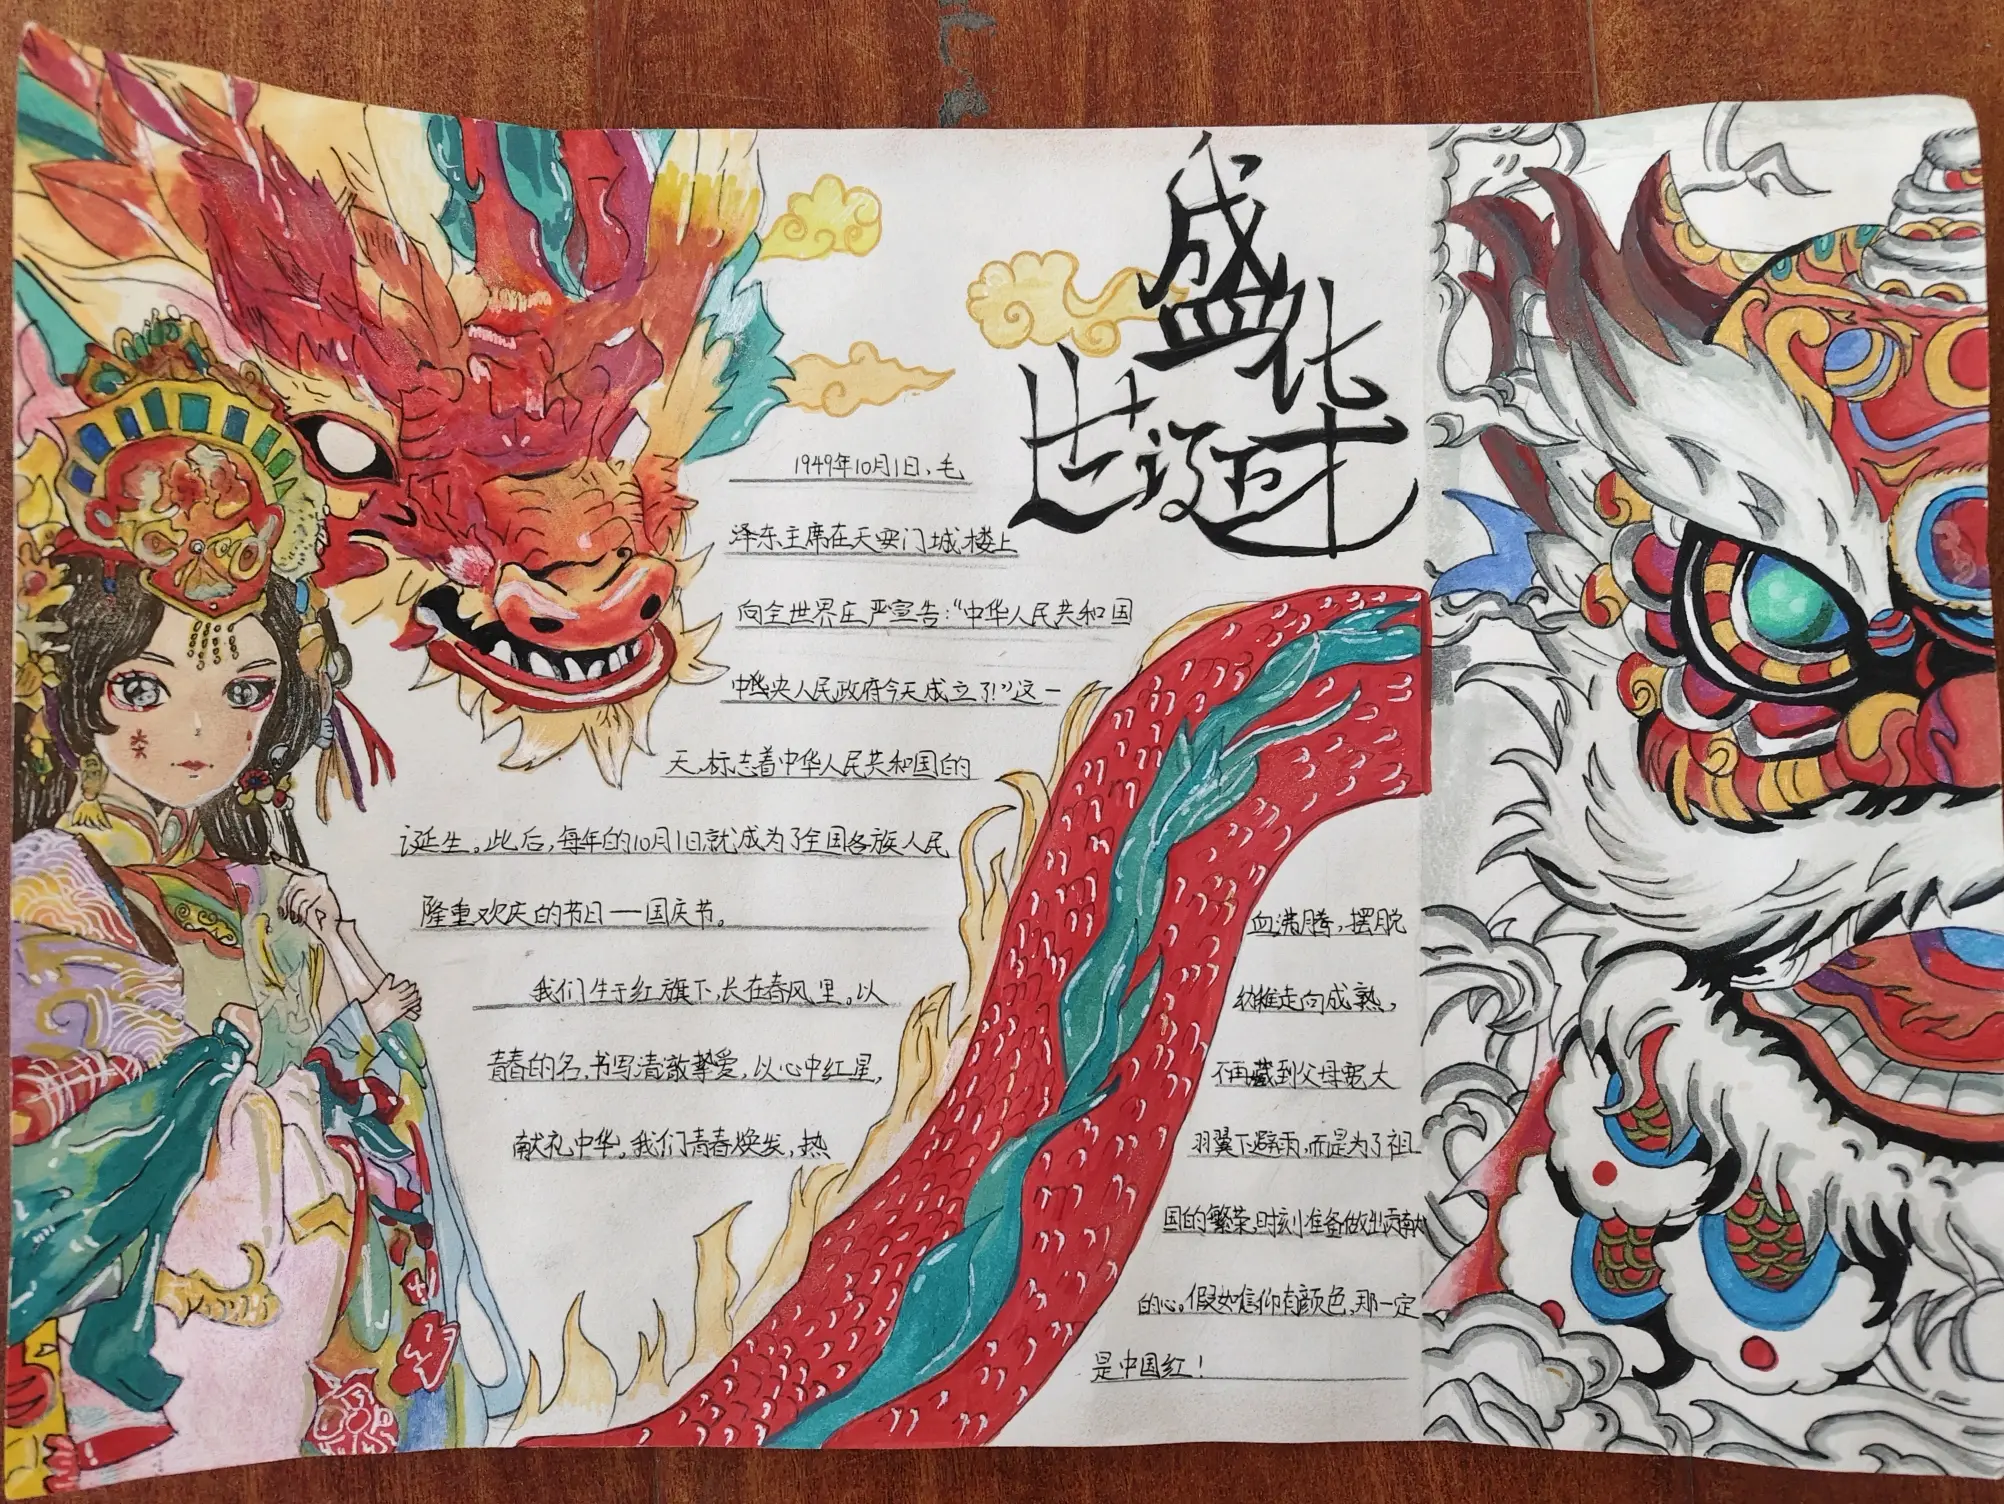 盛世华诞
1949年10月1日,毛
泽东主席在天安门城楼上
向全世界庄严宣告:“中华人民共和国
中央人民政府今天成立了!”这一
天,标志着中华人民共和国的
诞生。此后,每年的10月1日就成为了全国各族人民
隆重欢庆的节日——国庆节。
我们生于红旗下,长在春风里。以
青春的名,书写清澈挚爱,以心中红星,
献礼中华。我们青春焕发,热
血沸腾,摆脱
幼稚走向成熟,
不再藏到父母宽大
羽翼下避雨,而是为了祖
国的繁荣,时刻准备做出贡献
的心。假如信仰有颜色,那一定
是中国红!